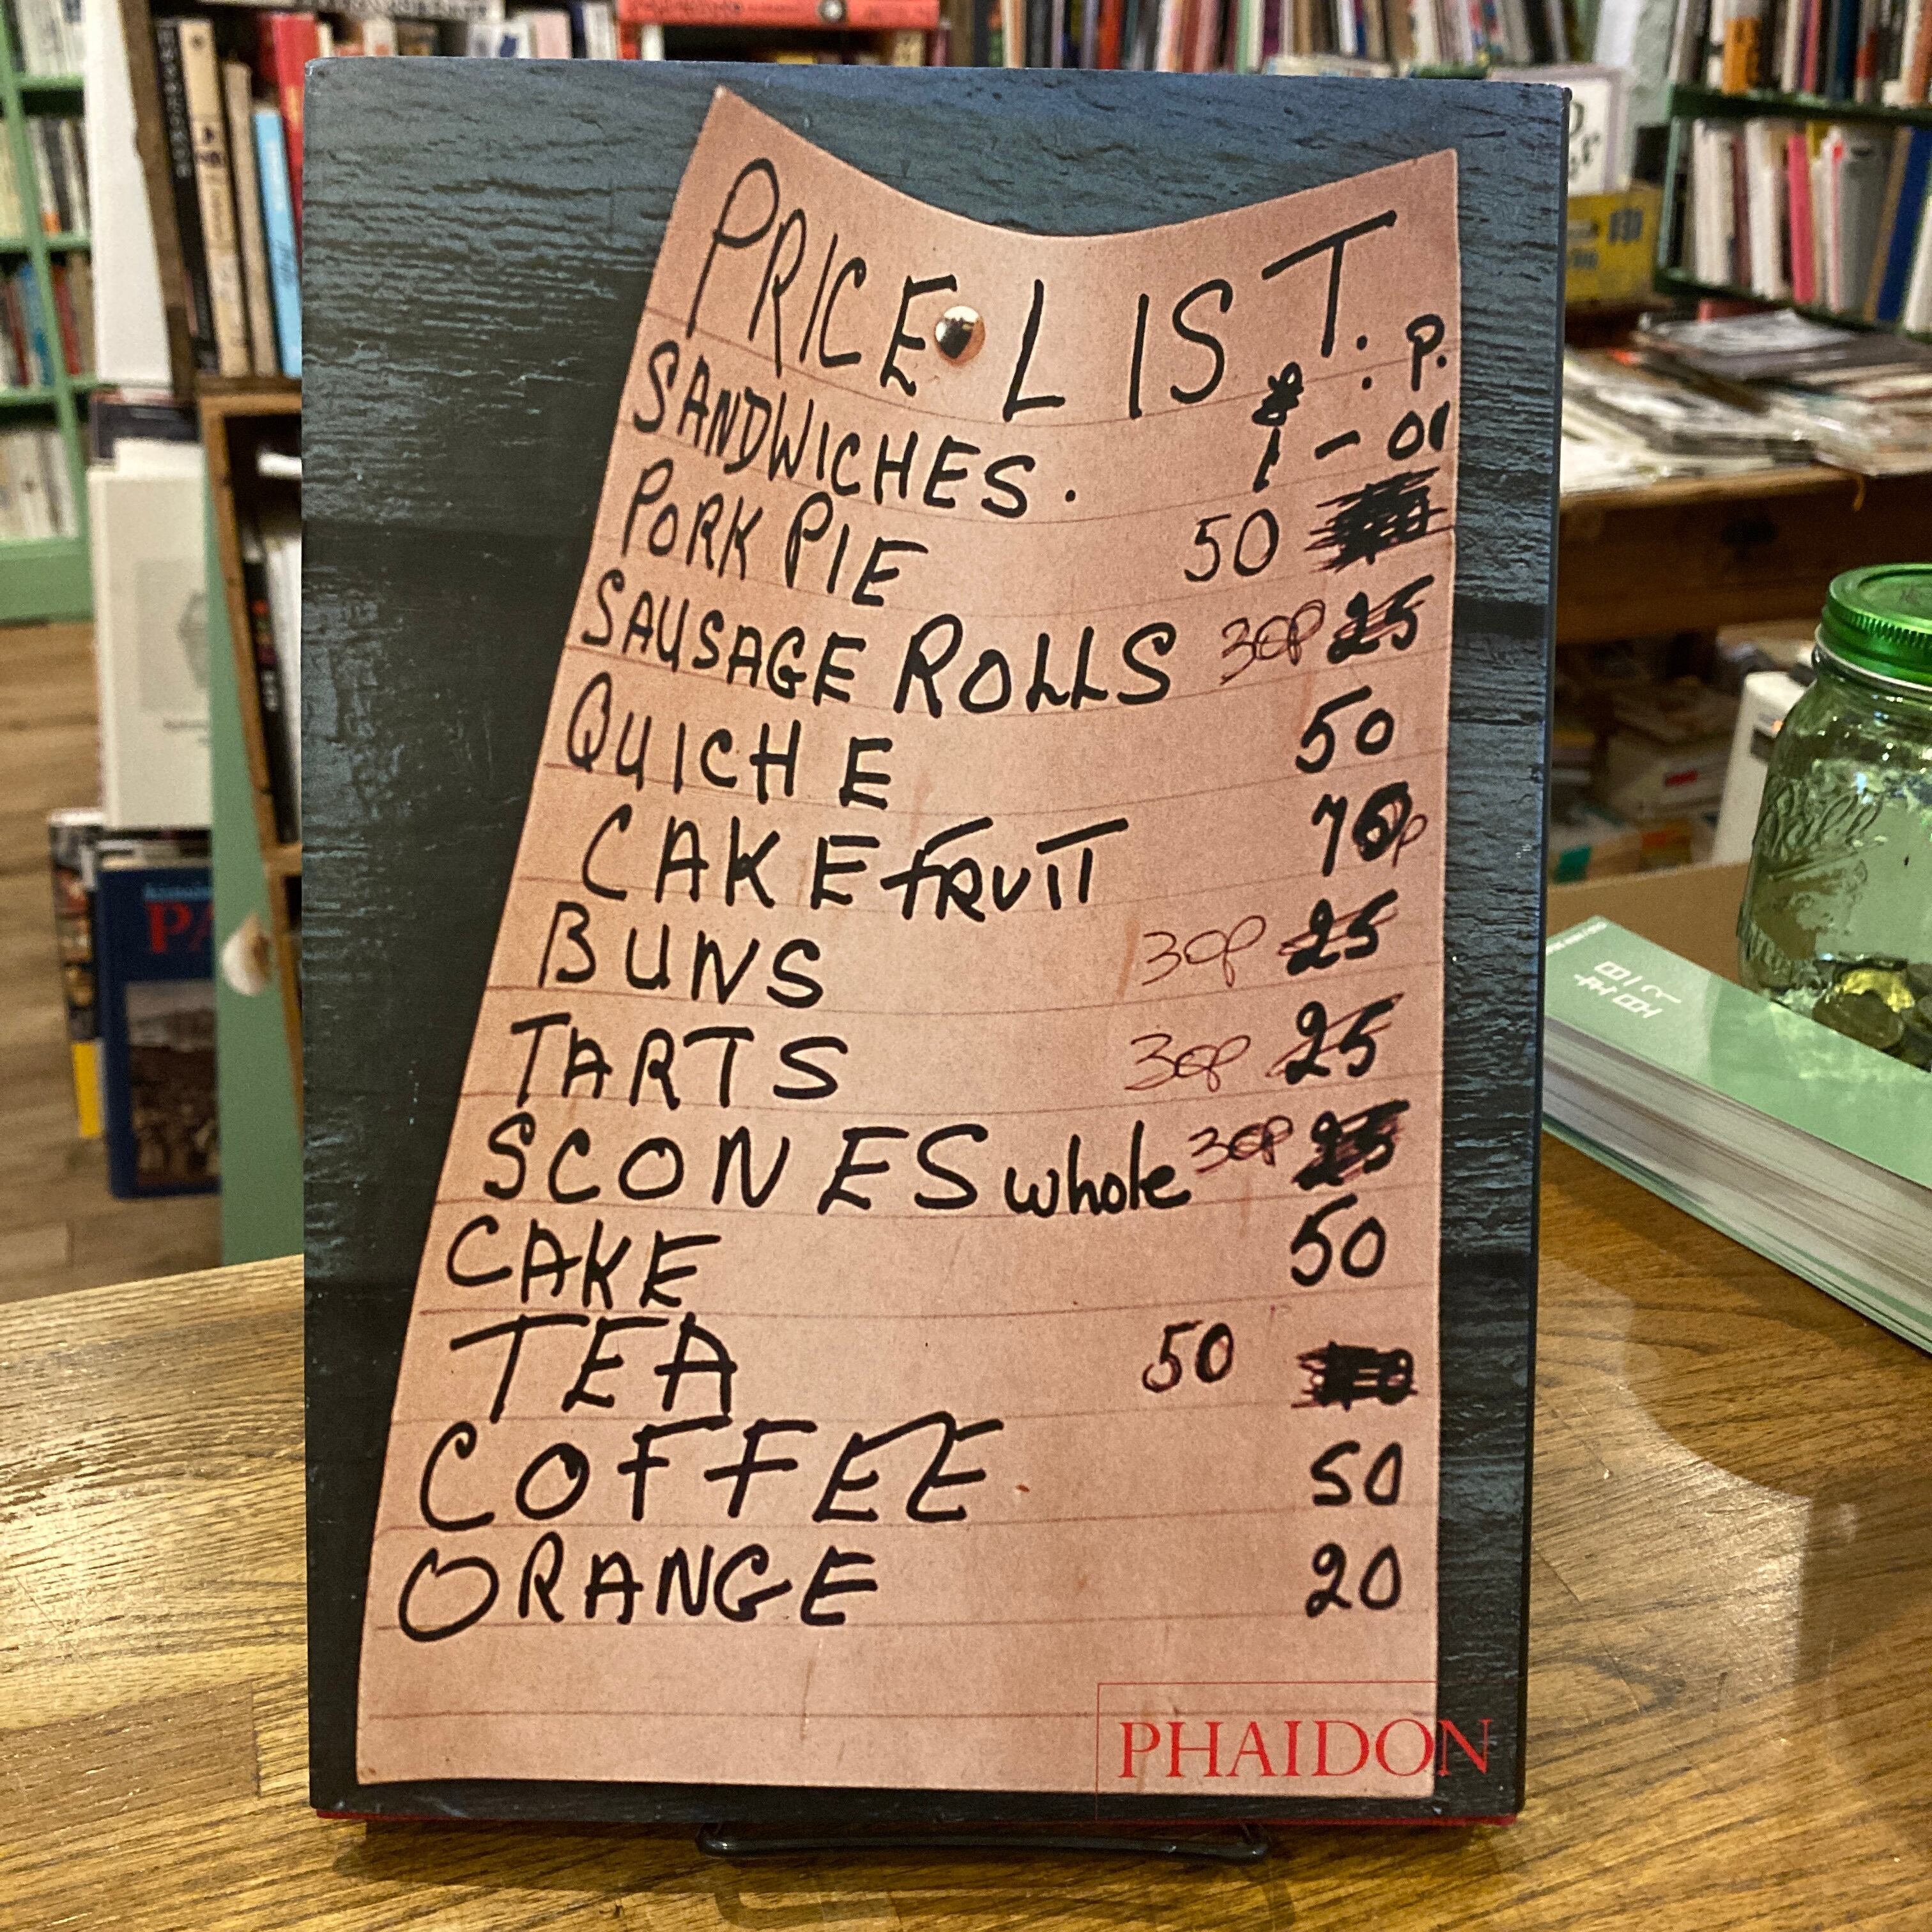 PRICE LIST.
£ . P.
SANDWICHES. 1 - 01
PORK PIE 50
SAUSAGE ROLLS 30P 25
QUICHE 50
CAKE FRUIT 70p
BUNS 30P 25
TARTS 30P 25
SCONES whole 30P 25
CAKE 50
TEA 50
COFFEE 50
ORANGE 20
PHAIDON